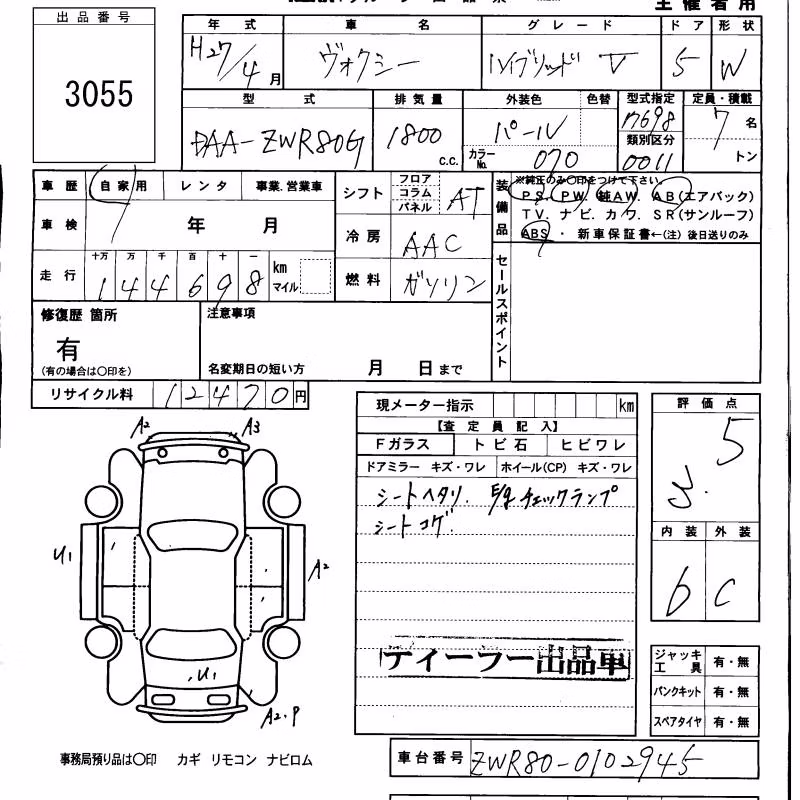 主催者用
出品番号
3055
年式 車名 グレード ドア 形状
H27/4月 ヴォクシー ハイブリッド V 5 W
型式 排気量 外装色 色替 型式指定 定員・積載
DAA-ZWR80G 1800 c.c. パール 17698 7 名
カラーNo. 070 類別区分 0011 トン
車歴 自家用 レンタ 事業.営業車 シフト フロア コラム パネル AT
装備品 ※純正のみ〇印をつけて下さい。
PS. PW. 純AW. AB(エアバック)
TV. ナビ. カワ. SR(サンルーフ)
ABS ・ 新車保証書←(注) 後日送りのみ
車検 年 月 冷房 AAC
走行 十万 万 千 百 十 一
144698 km マイル 燃料 ガソリン
セールスポイント
修復歴 箇所 注意事項
有
(有の場合は〇印を) 名変期日の短い方 月 日まで
リサイクル料 12470円
現メーター指示 km
評価点
【査定員記入】
Fガラス トビ石 ヒビワレ
ドアミラー キズ・ワレ ホイール(CP) キズ・ワレ
シートヘタリ. E/g チェックランプ
シートコゲ.
3.5
内装 外装
b C
A2 A3
U1 A2
U1
A2.P
ティーラー出品車
ジャッキ 工具 有・無
パンクキット 有・無
スペアタイヤ 有・無
事務局預り品は〇印 カギ リモコン ナビロム
車台番号 ZWR80-0102945